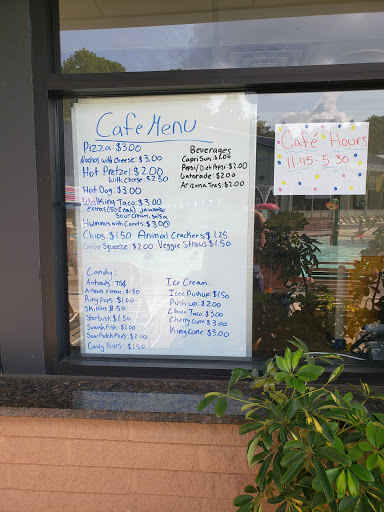 Cafe Menu
Pizza: $3.00
Nachos with cheese: $3.00
Hot Pretzel: $2.00
with cheese: $2.50
Hot Dog: $3.00
Walking Taco: $3.00
extras (50¢ each)
sour cream, salsa
Hummus with Carrots: $3.00
Chips $1.50 Animal Crackers $1.25
GoGo Squeeze: $2.00 Veggie Straws $1.50
Beverages
Capri Sun: $1.00
Pepsi/Diet Pepsi: $2.00
Gatorade: $2.00
Arizona Teas: $2.00
Candy:
Airheads: 75¢
Airheads Xtreme: $1.50
Ring Pops: $1.00
Skittles $1.50
Starburst: $1.50
Swedish Fish: $2.00
Sour Patch Kids: $2.00
Candy Bars: $1.50
Ice Cream
Icee Pushup: $1.50
Push up: $2.00
Choco Taco: $3.00
Cherry Cone: $3.00
King Cone: $3.00
Café Hours
11:45-5:30